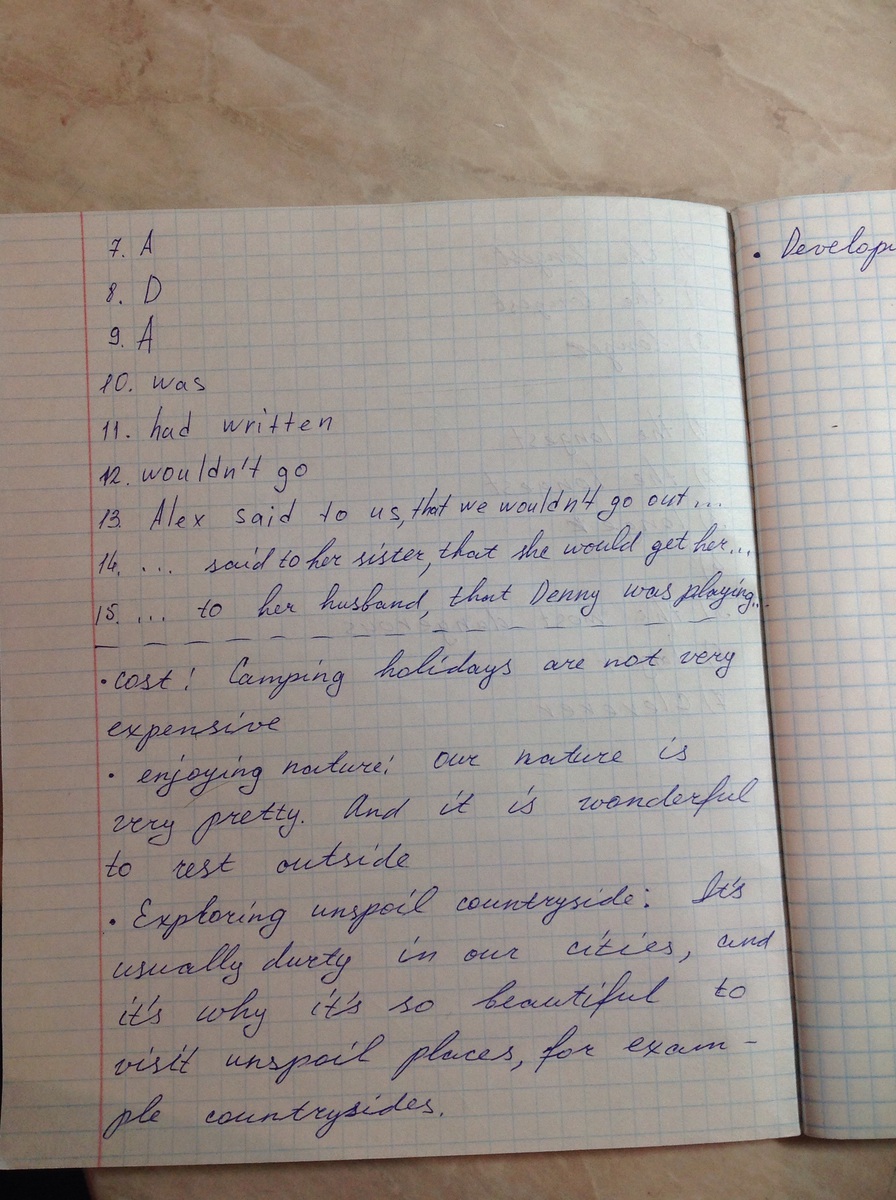 7. A
8. D
9. A
10. was
11. had written
12. wouldn't go
13. Alex said to us, that we wouldn't go out...
14. ... said to her sister, that she would get her...
15. ... to her husband, that Denny was playing...
• cost: Camping holidays are not very
expensive
• enjoying nature: our nature is
very pretty. And it is wonderful
to rest outside
• Exploring unspoil countryside: It's
usually durty in our cities, and
it's why it's so beautiful to
visit unspoil places, for exam-
ple countrysides.
• Develop